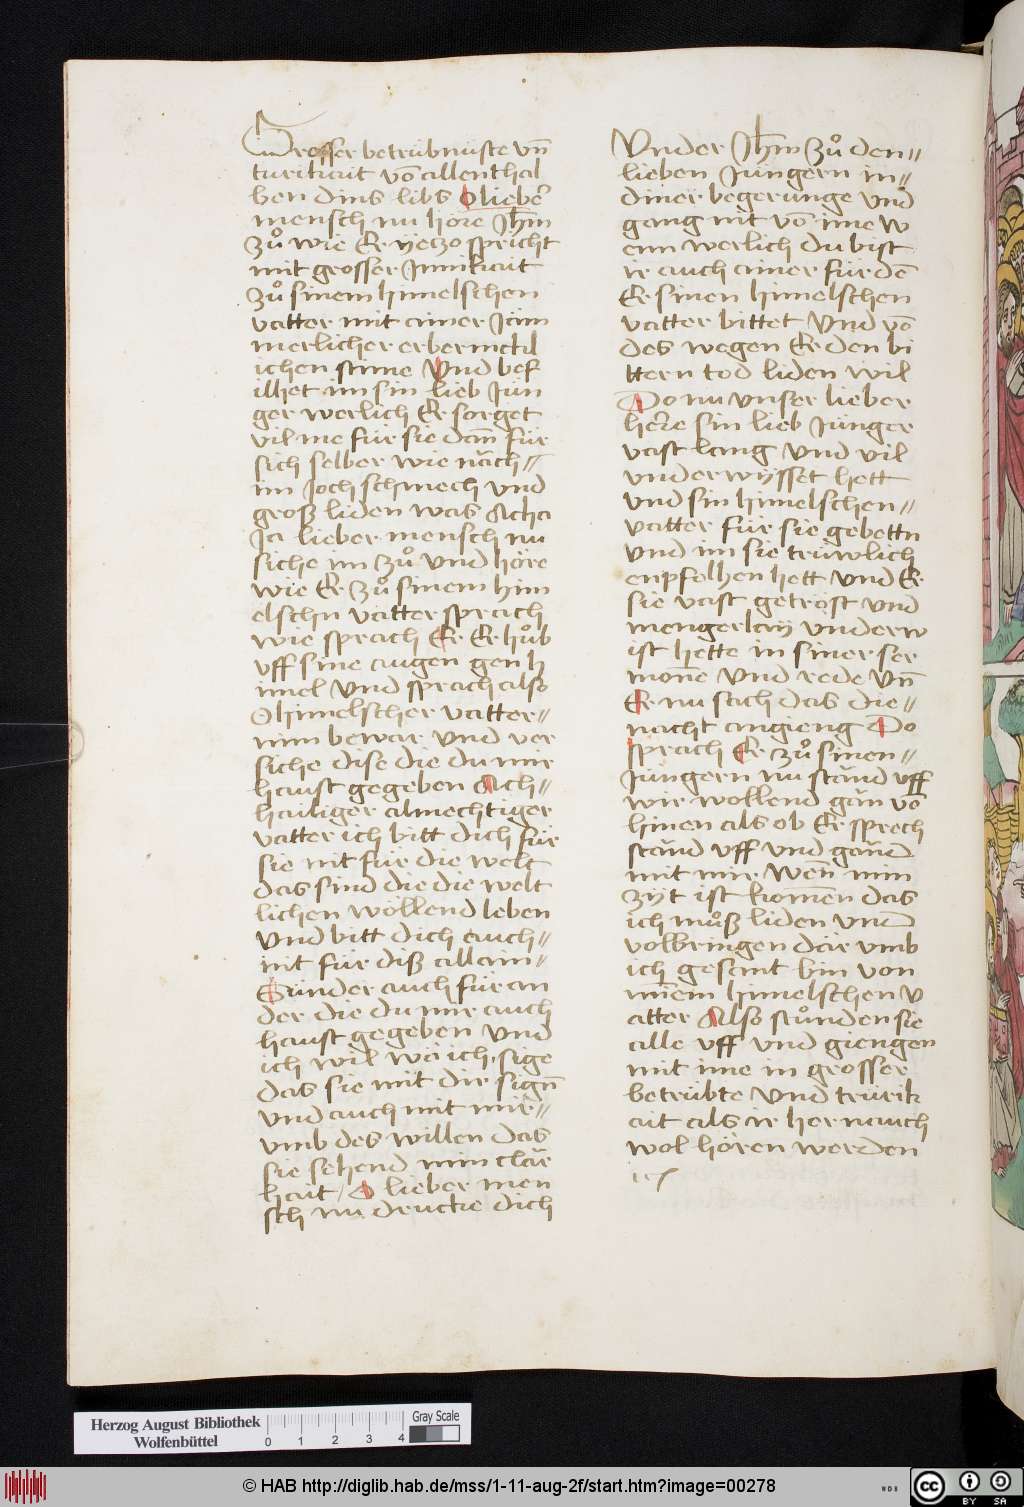 Grosser betrübnuste vn̄
turikait vō allenthal
ben dins libs O lieber
mensch nu höre Jh̄m
zů wie Er yeczo spricht
mit grosser Jnnikait
zů sinem himelschen
vatter mit ainer Jäm
merlicher erbermckl
ichen stime Vnd bef
ilhet im sin lieb Jün
ger werlich Er sorget
vil me für sie dan̄ für
sich selber wie nǎch=
im Joch schmech vnd
groß liden was Acha
Ja lieber mensch nu
siche im zů vnd höre
wie Er zů sinem him
elschn vatter sprach
wie sprach Er Er hůb
vff sine augen gen h
imel Vnd sprach also
O himelscher vatter=
nim bewar vnd ver
siche dise die du mir
haust gegeben Ach=
hailiger almechtiger
vatter ich bitt dich für
sie nit für die welt
das sind die die welt
lichen wöllend leben
Vnd bitt dich auch=
nit für diß allain=
Sünder auch für an
der die du mir auch
haust gegeben vnd
ich wil wa ich sige
das sie mit dir sign̄
vnd auch mit mir=
vmb des willen das
sie sehend min clǎr
hait / O lieber men
sch nu drucke dich
Vnder Jh̄m zů den=
lieben Jüngern in=
diner begerunge vnd
gang nit vō ime w
enn werlich du bist
ir auch ainer für dē
Er sinen himelschen
vatter bittet Vnd vō
des wegen Er den bi
ttern tod liden wil
Do nu vnser lieber
here sin lieb Jünger
vast lang vnd vil
vnderwysset hett
vnd sin himelschen=
vatter für sie gebettn
vnd im sie trüwlich
enpfolhen hett vnd Er
sie vast getröst vnd
mengerlay vnderw
ist hette in siner ser
mone Vnd rede vn̄
Er nu sach das die=
nacht angieng Do
sprach Er zů sinen=
Jüngern nu stǎnd vff
wir wollend gǎn vō
hinen als ob Er sprech
stǎnd vff vnd gǎnd
mit mir Wen̄ min
zyt ist komen das
ich můß liden vnd
volbringen dǎr vmb
ich gesant bin von
minem himelschen v
atter Also stůnden sie
alle vff vnd giengen
mit ime in grosser
betrübte Vnd trürik
ait als ir her nauch
wol hören werden
Herzog August Bibliothek
Wolfenbüttel
0 1 2 3 4
Gray Scale
© HAB http://diglib.hab.de/mss/1-11-aug-2f/start.htm?image=00278
WDB
cc BY SA